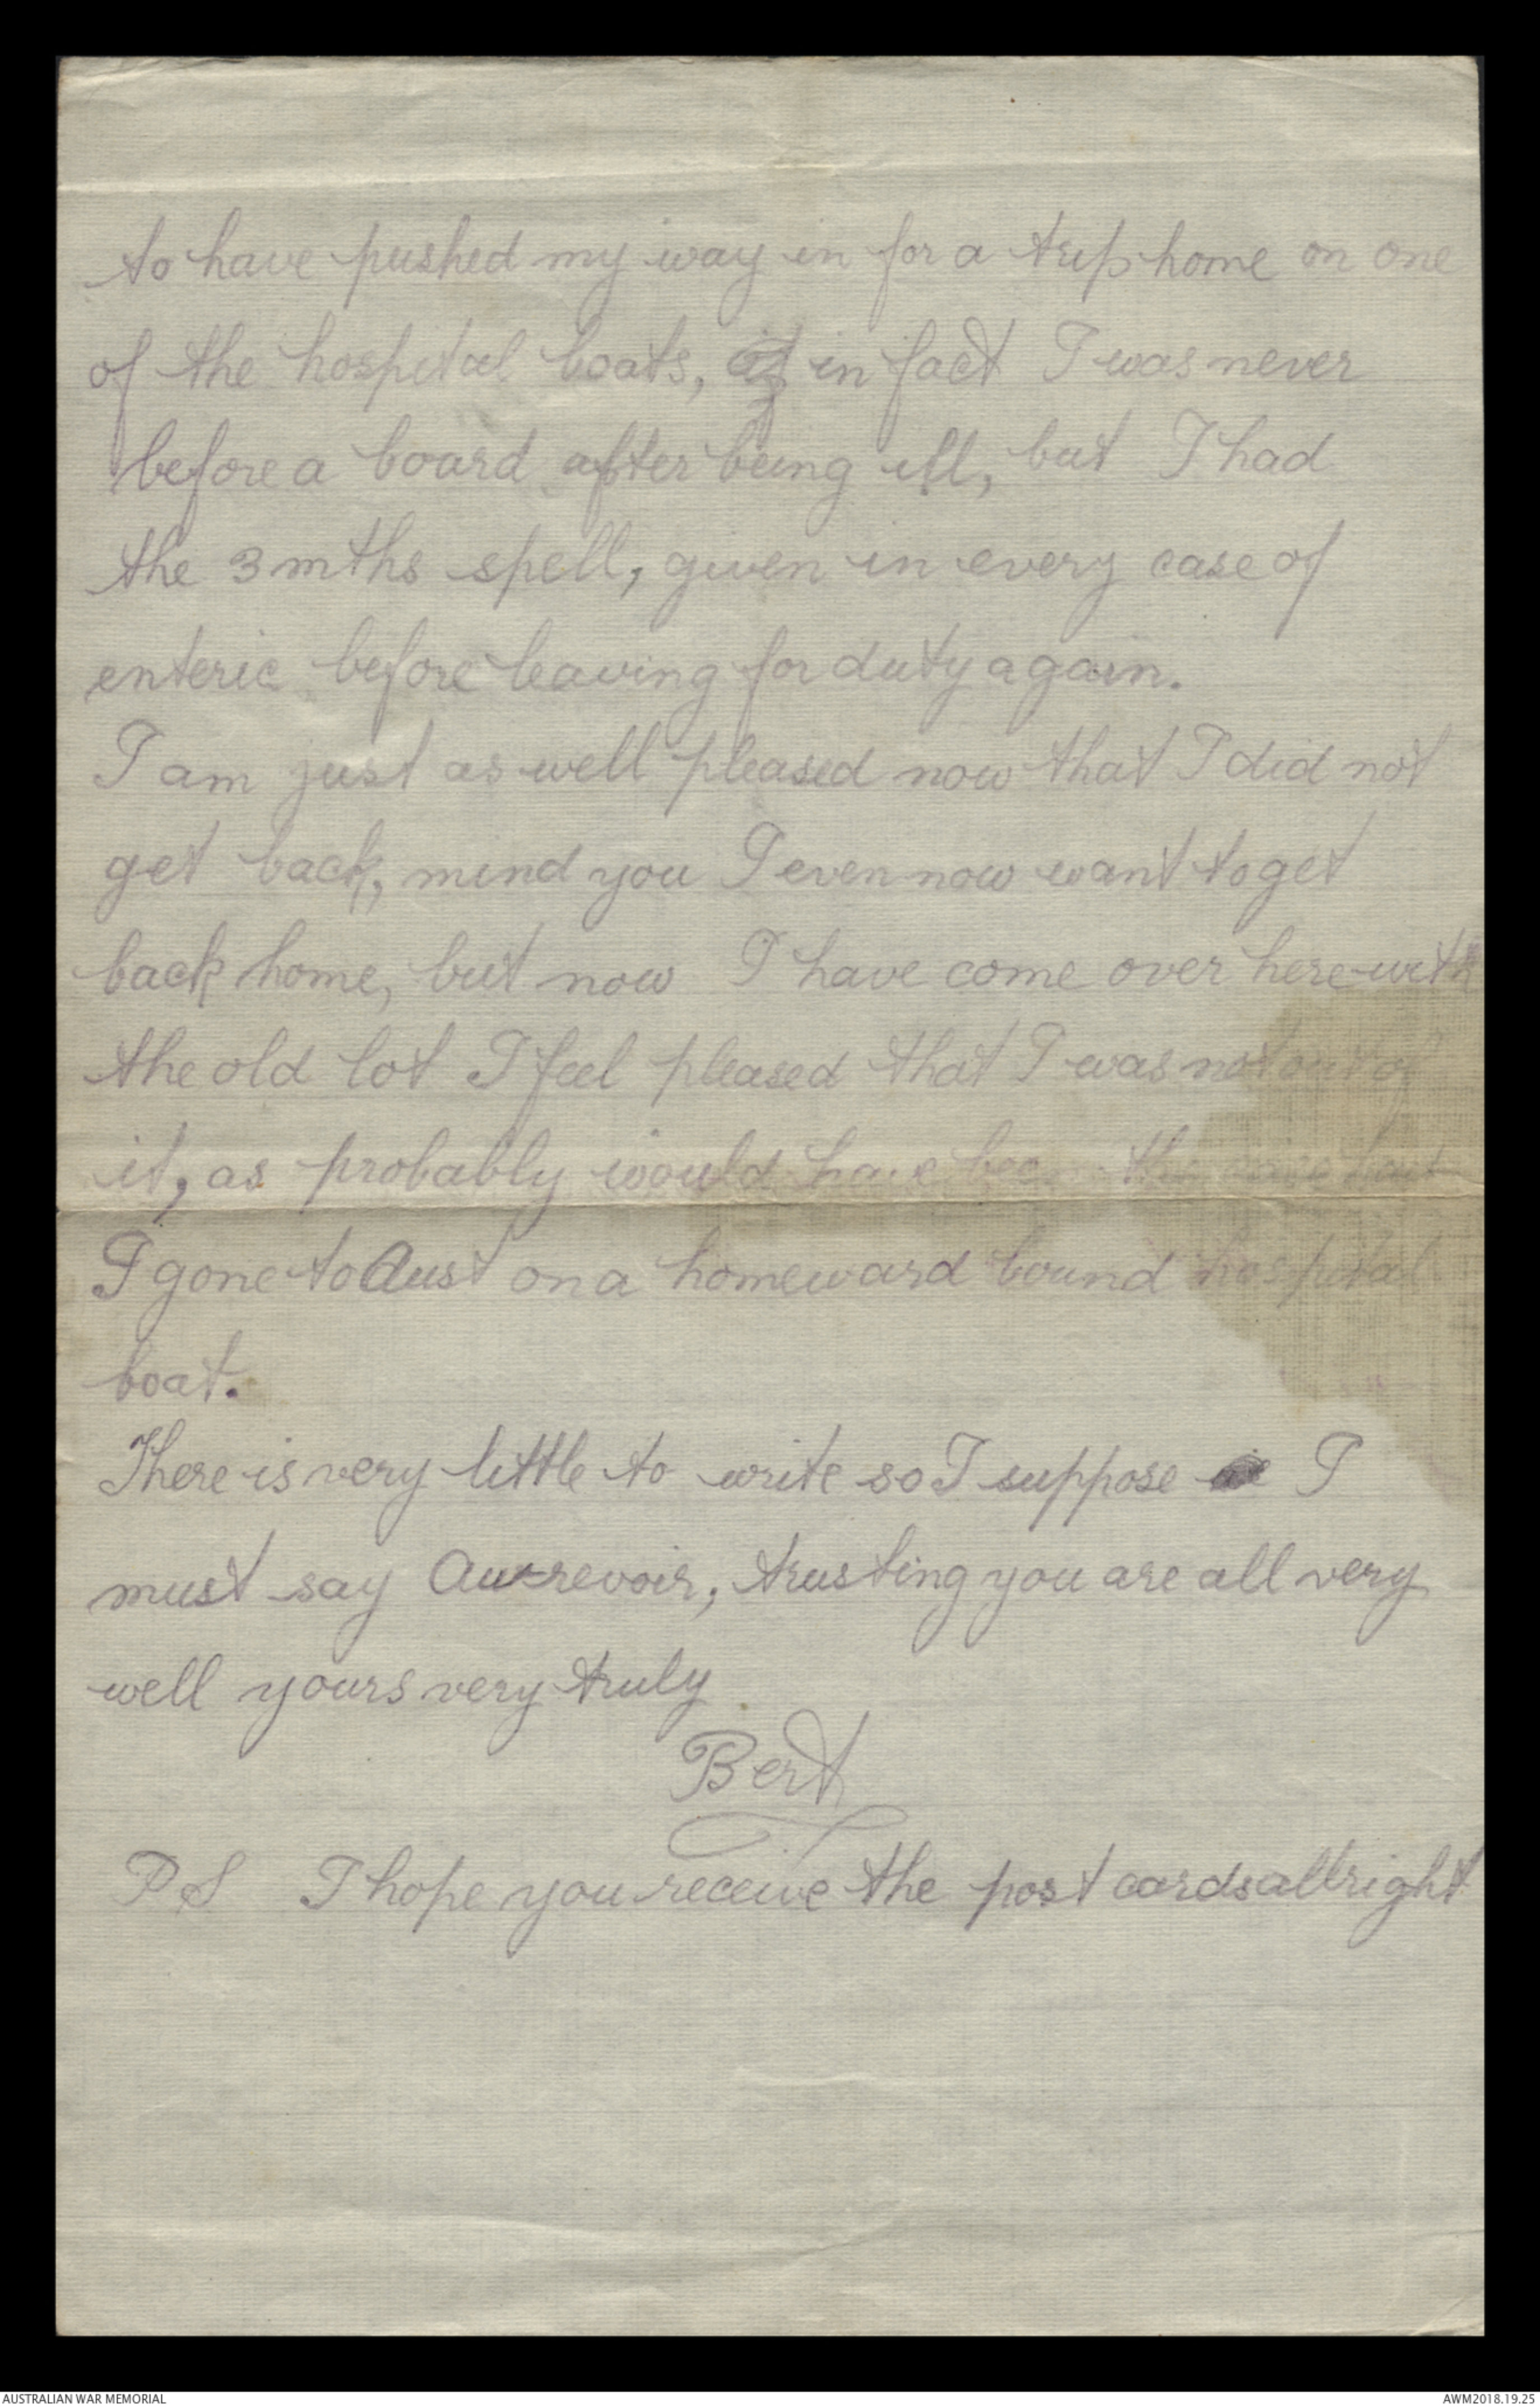 to have pushed my way in for a trip home on one
of the hospital boats, in fact I was never
before a board after being ill, but I had
the 3 mths spell, given in every case of
enteric before leaving for duty again.
I am just as well pleased now that I did not
get back, mind you I even now want to get
back home, but now I have come over here with
the old lot I feel pleased that I was not out of
it, as probably would have been the case had
I gone to Aust on a homeward bound hospital
boat.
There is very little to write so I suppose I
must say Au-revoir, trusting you are all very
well yours very truly
Bert
PS I hope you receive the post cards allright
AUSTRALIAN WAR MEMORIAL
AWM2018.19.25